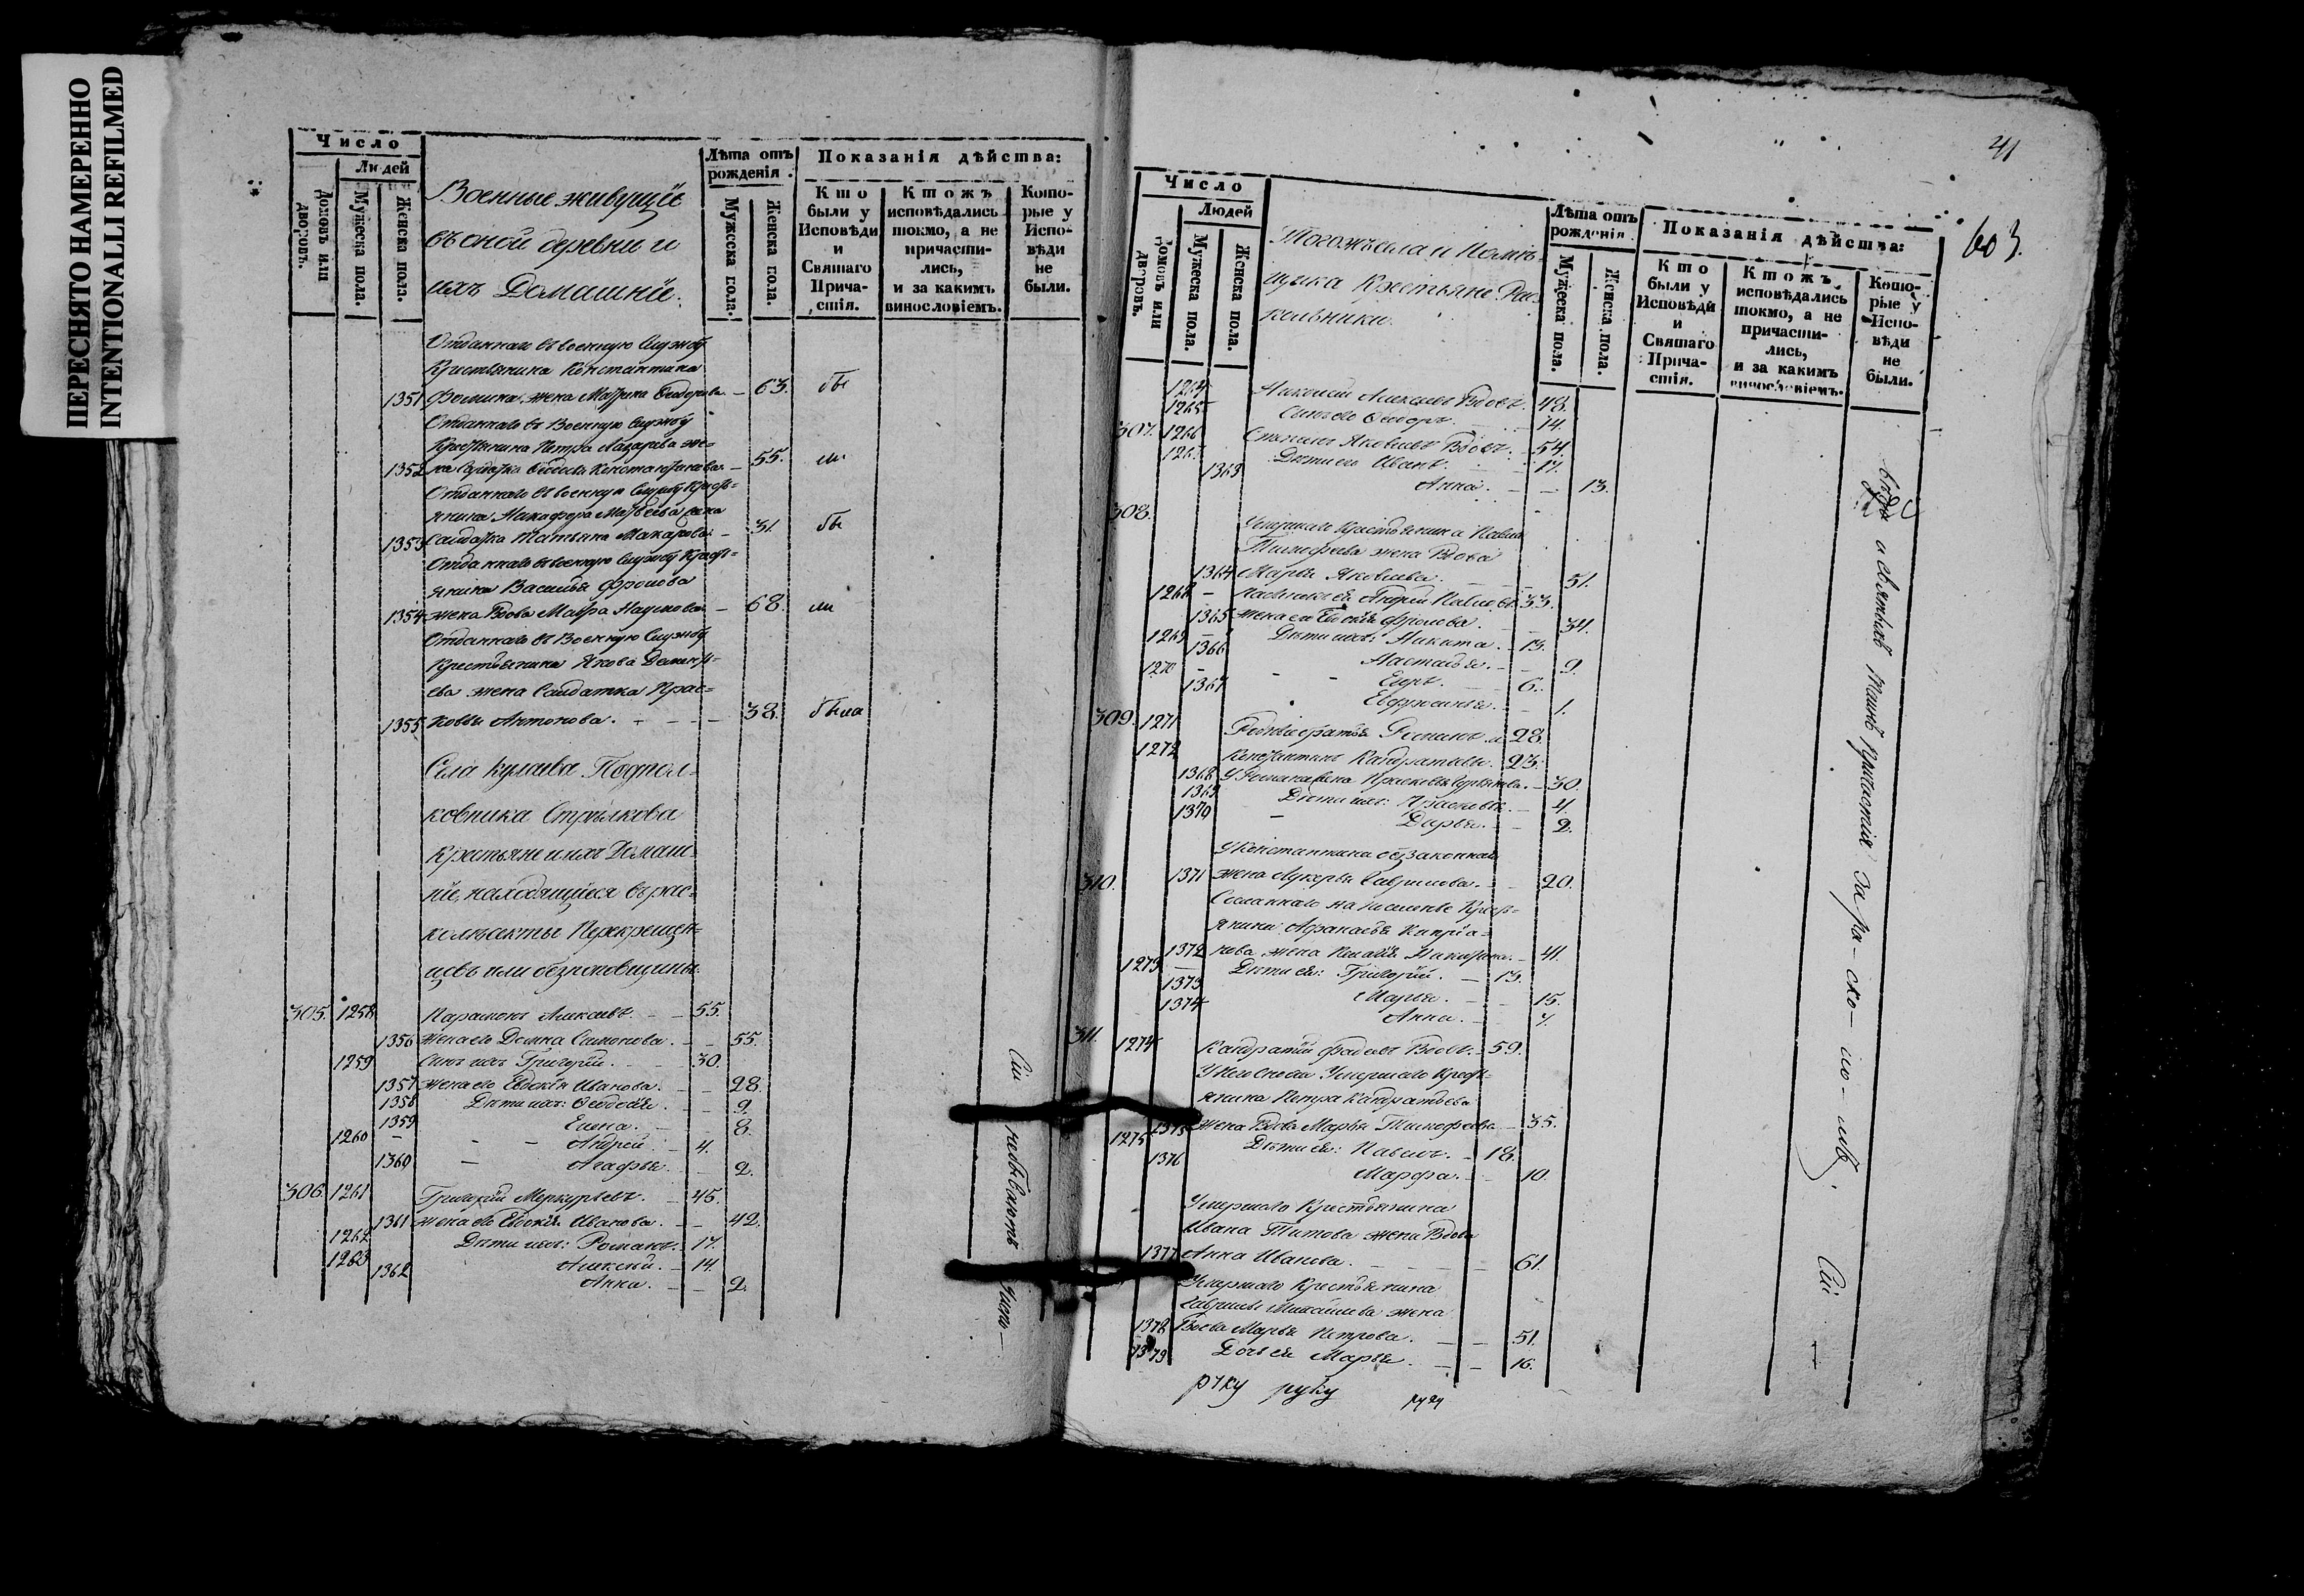 ПЕРЕСНЯТО НАМЕРЕННО
INTENTIONALLI REFILMED
Число
Людей
домовъ или дворовъ.
Мужеска пола.
Женска пола.
Военные живущіе
въ оной деревни и
ихъ Домашніе.
Лѣта отъ рожденія.
Мужеска пола.
Женска пола.
Показанія дѣйства:
Кто были у Исповѣди и Святаго Прича-стія.
Ктожъ исповѣдались токмо, а не причасти-лись, и за какимъ винословіемъ.
Кото-рые у Испо-вѣди не были.
Отданнаго въ военную службу
Крестьянина Константина
1351 Фомина жена Мавра Федорова. 63. бы
Отданнаго въ Военную службу
Крестьянина Петра Лазарева же-
1352 на Солдатка Федосья Константинова. 55. ли
Отданнаго въ военную службу Кресть-
янина Никифора Матвеева жена
1353 Солдатка Татьяна Макарова. 31. бы
Отданнаго въ военную службу Кресть-
янина Василья Фролова
1354 жена Вдова Мавра Наумова. 68. ли
Отданнаго въ Военную службу
Крестьянина Якова Дементь-
ева жена Солдатка Прас-
1355 ковья Антонова. 38. была
Села Кулаева Подпол-
ковника Стрѣлкова
Крестьяне и ихъ Домаш-
ніе, находящіеся въ рас-
колѣ секты Перекрещен-
цовъ или безпоповщины.
305. 1258 Парамонъ Алексѣевъ. 55.
1356 жена его Домна Симонова. 55.
1259 Сынъ ихъ Григорій. 30.
1357 жена его Евдокія Иванова. 28
1358 Дѣти ихъ: Феодосія. 9.
1359 Елена. 8.
1260 Андрей. 4.
1360 Агафья. 2.
306. 1261 Григорій Меркурьевъ. 45.
1361 жена его Евдокія Иванова. 42.
1262 Дѣти ихъ: Романъ. 17.
1263 Алексѣй. 14.
1362 Анна. 2.
Сіи небываютъ
41
603.
Число
Людей
домовъ или дворовъ.
Мужеска пола.
Женска пола.
Тогожъ села и Помѣ-
щика Крестьяне Рас-
кольники.
Лѣта отъ рожденія.
Мужеска пола.
Женска пола.
Показанія дѣйства:
Кто были у Исповѣди и Святаго Прича-стія.
Ктожъ исповѣдались токмо, а не причасти-лись, и за какимъ винословіемъ.
Кото-рые у Испо-вѣди не были.
1264 Алексѣевъ Вдовъ. 48.
1265 Сынъ его Федоръ. 14.
307. 1266 Яковлевъ Вдовъ. 54.
1267 Дѣти его Иванъ. 17.
1363 Анна. 13.
308.
Умершаго Крестьянина Павла
Тимофеева жена Вдова
1364 Марья Яковлева. 51.
1268 Андрей Павловъ 33.
1365 жена его Евдокія Фролова. 34.
1269 Дѣти ихъ: Никита. 13.
1366 Настасья. 9.
1270 Егоръ. 6.
1367 Евфросинья. 1.
309. 1271 Родніе братья 28.
1272 Константинъ Кандратьевы. 23.
1368 жена Прасковья 30.
1369 Дѣти ихъ: Прасковья. 4.
1370 Дарья. 2.
310.
У Константина беззаконная
1371 жена Лукерья Гаврилова. 20.
Сосланнаго на поселенье Кресть-
янина Афанасья Кипріа-
1372 нова жена 41.
1273 Дѣти ея: Григорій. 13.
1373 Марья. 15.
1374 Анна.
311. 1274 Кандратій Фадѣевъ Вдовъ. 59.
У Него Сноха Умершаго Кресть-
янина Петра Кандратьева
1375 жена Вдова Марья Тимофеева 35.
1275 Дѣти ея: Павелъ. 18.
1376 Марфа. 10.
Умершаго Крестьянина
Ивана Титова жена Вдова
1377 Анна Иванова. 61.
Умершаго Крестьянина
Гаврилы Михайлова жена
1378 Вдова Марья Петрова. 51.
1379 Дочь ея Марья. 16.
и святыхъ таинъ причастія за ра-ско-ло-мъ.
Сіи
руку руку